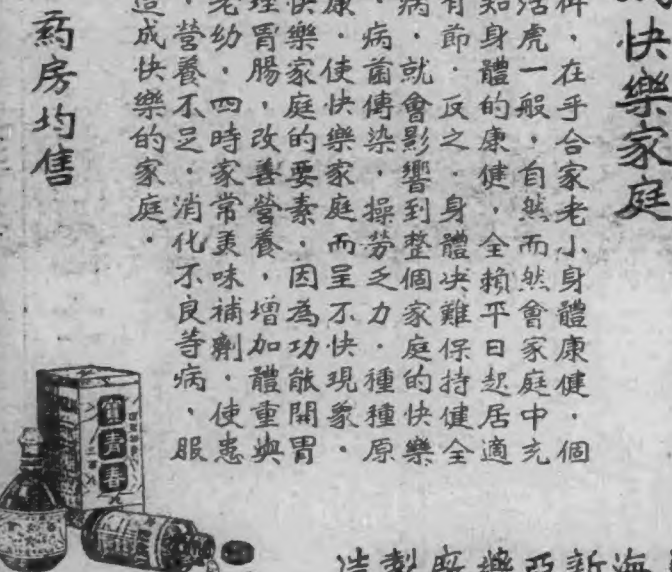 快樂家庭
，在乎合家老小身體康健，個
活虎一般，自然而然會家庭中充
知身體的康健，全賴平日起居適
有節．反之．身體決難保持健全
病，就會影響到整個家庭的快樂
．病菌傳染，操勞乏力．種種原
康．使快樂家庭而呈不快現象．
快樂家庭的要素，因為功能開胃
理胃腸，改善營養，增加體重與
老幼．四時家常美味補劑．使患
，營養不足，消化不良等病，服
造成快樂的家庭．
葯房均售
寶青春
海新亞藥廠製造